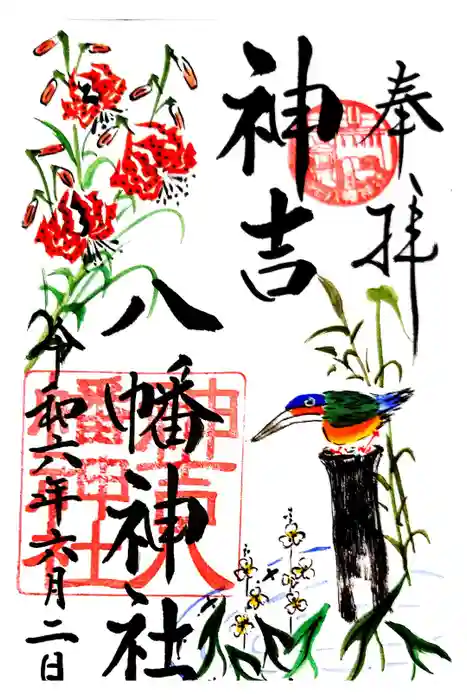 奉拝
神吉
八幡神社
令和六年六月二日